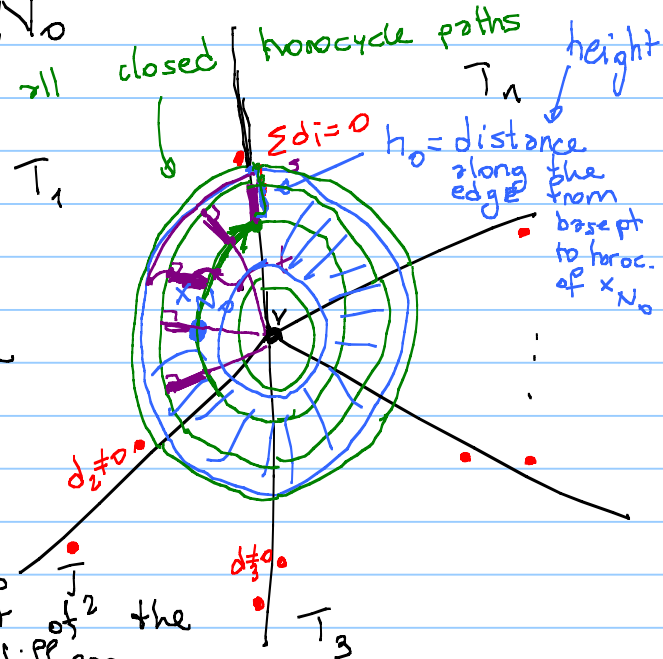 N₀
all closed horocycle paths
height
Tₙ
Σdi=0
h₀ = distance
along the
edge from
base pt
to horoc.
of x_N₀
T₁
x_N₀
v
d₂≠0
d₃≠0
T₂
of the
T₃